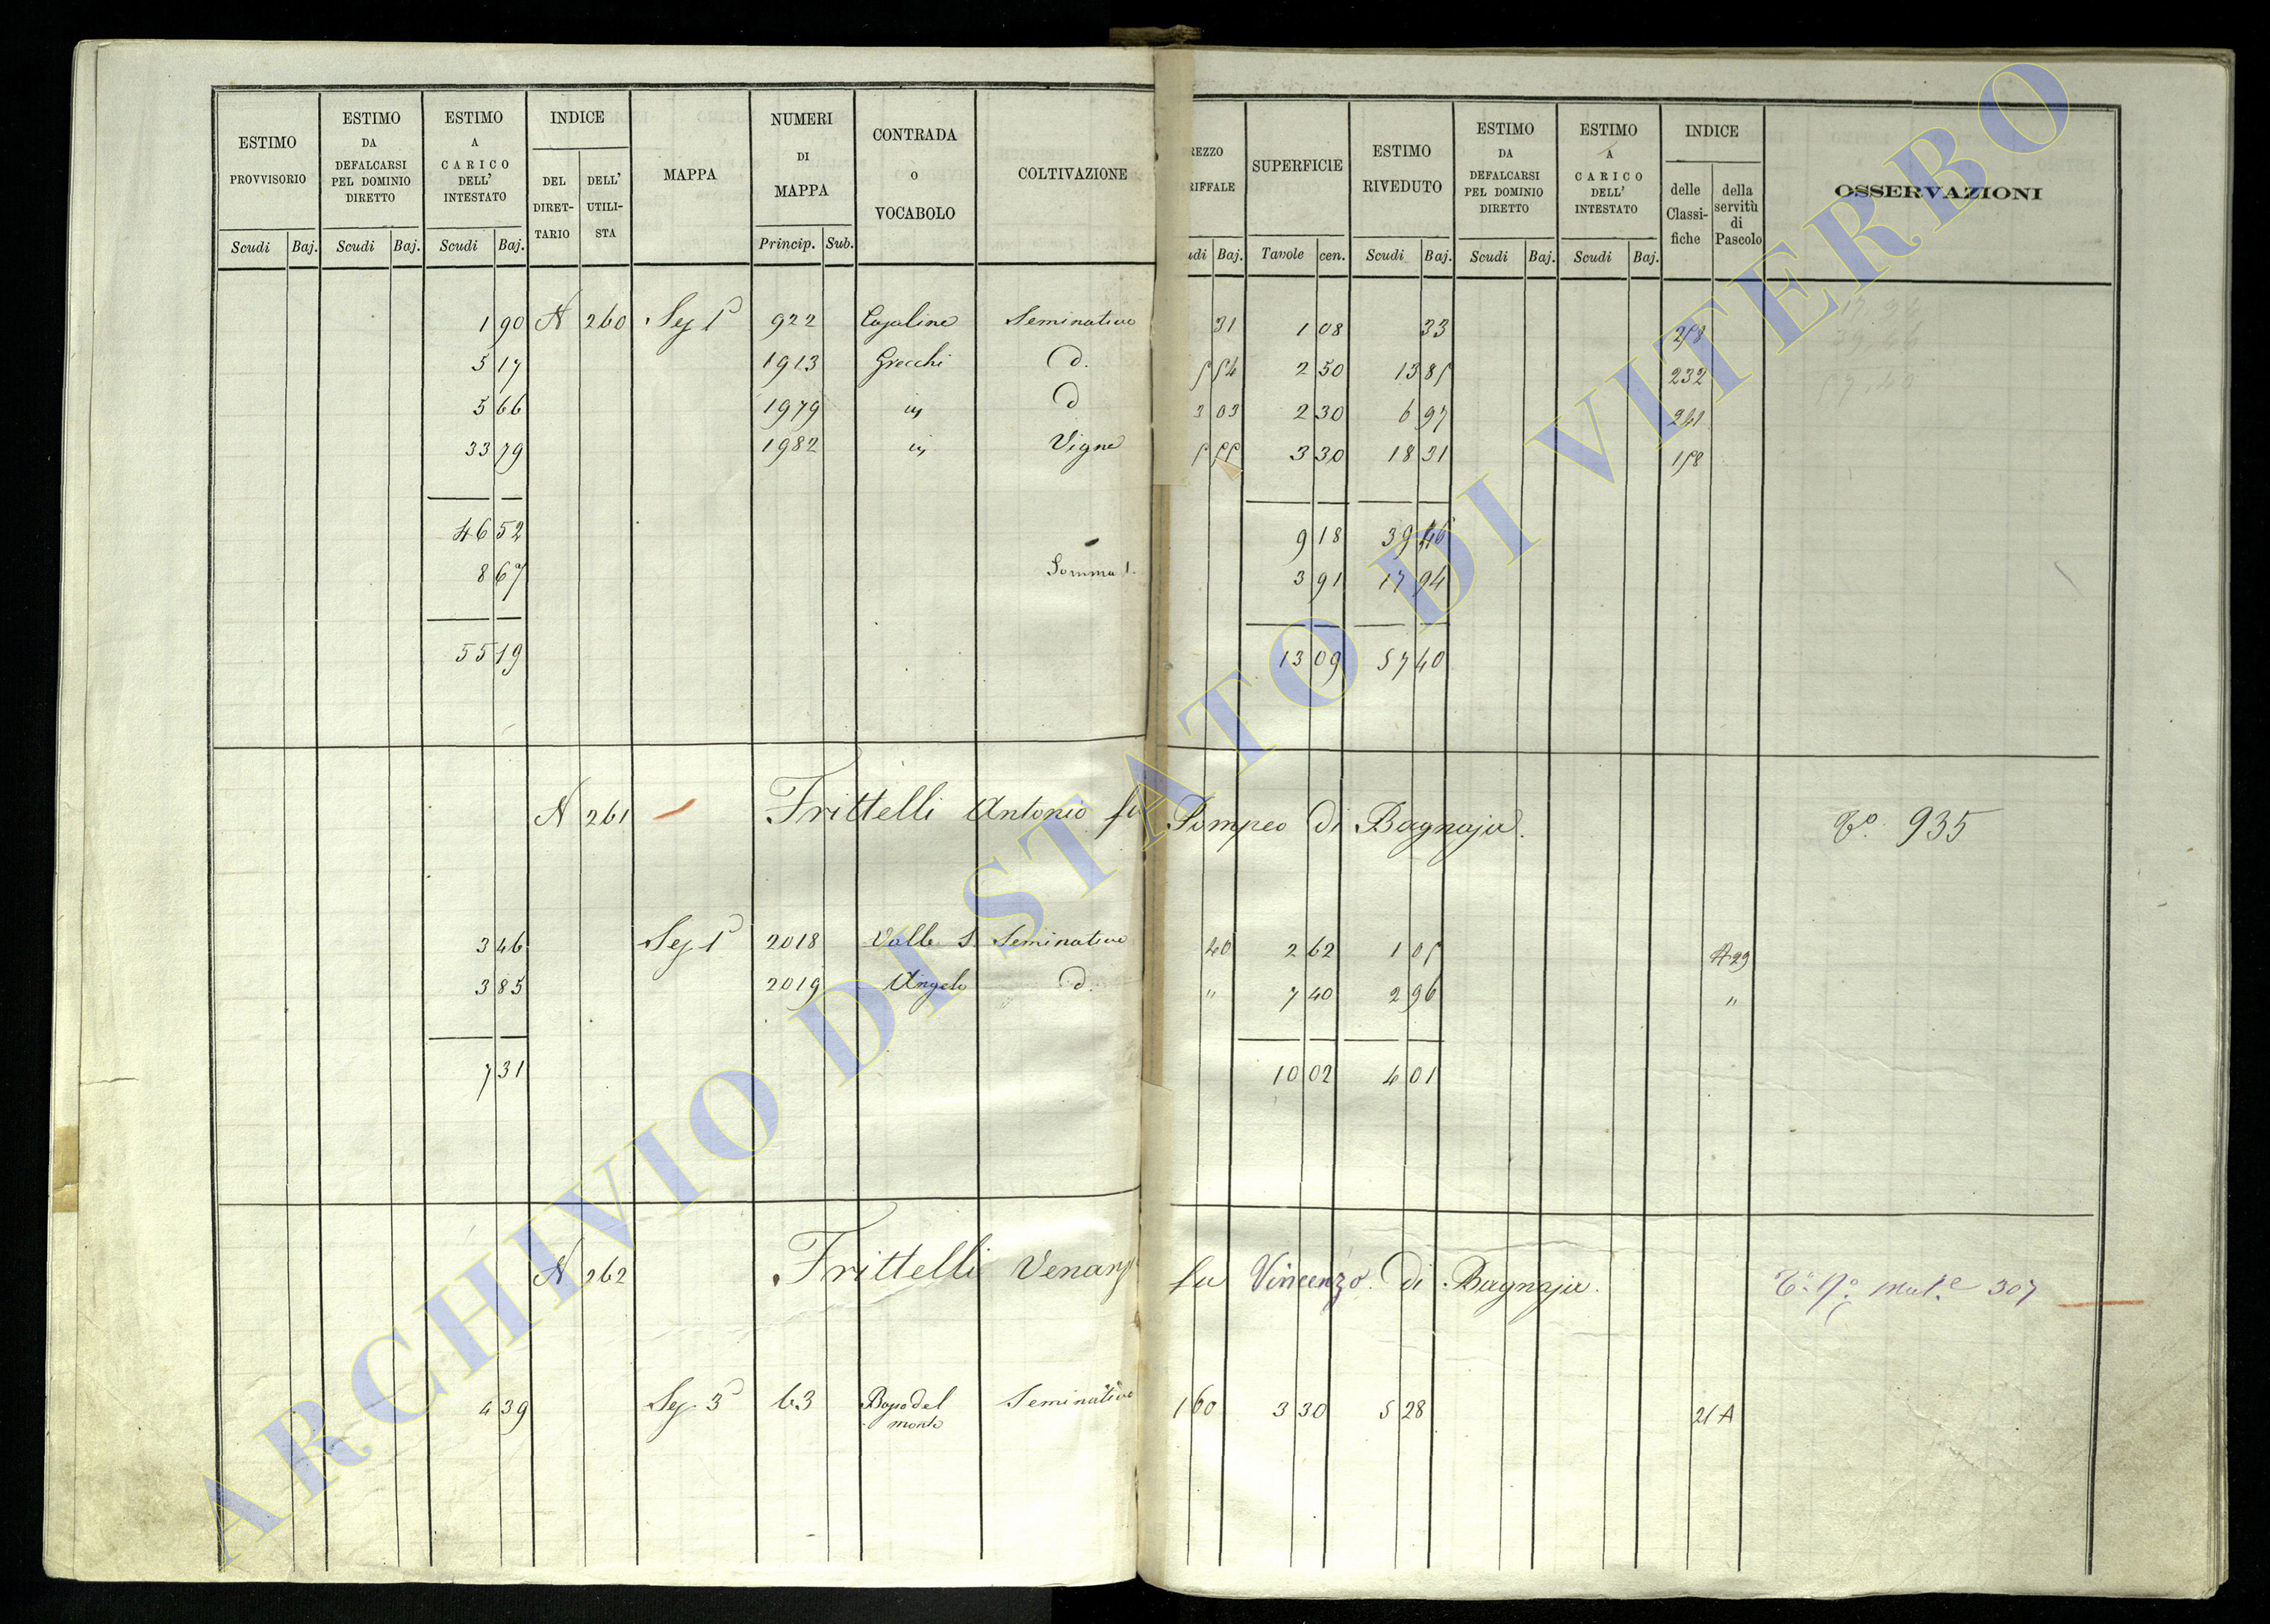 ESTIMO PROVVISORIO
ESTIMO DA DEFALCARSI PEL DOMINIO DIRETTO
ESTIMO A CARICO DELL' INTESTATO
INDICE
DEL DIRET-TARIO
DELL' UTILI-STA
MAPPA
NUMERI DI MAPPA
CONTRADA O VOCABOLO
COLTIVAZIONE
REZZO RIFFALE
SUPERFICIE
ESTIMO RIVEDUTO
ESTIMO DA DEFALCARSI PEL DOMINIO DIRETTO
ESTIMO A CARICO DELL' INTESTATO
INDICE
delle Classi-fiche
della servitù di Pascolo
OSSERVAZIONI
Scudi Baj. Scudi Baj. Scudi Baj. Princip. Sub. udi Baj. Tavole cen. Scudi Baj. Scudi Baj. Scudi Baj.
1 90 N 260 Sez 1ª 922 Seminativo 31 1 08 33 258
5 17 1913 Grecchi d. 5 54 2 50 13 85 232
5 66 1979 d 3 03 2 30 6 97 241
33 79 1982 Vigna 5 55 3 30 18 31 158
46 52 9 18 39 46
8 67 Somma 3 91 17 94
55 19 13 09 57 40
17 94
39,46
57,40
N 261 Frittelli Antonio fu Pompeo di Bagnaja. 935
3 46 Sez 1ª 2018 Valle S. Seminativo 40 2 62 1 05 A 29
3 85 2019 Angelo d. " 7 40 2 96 "
7 31 10 02 4 01
N 262 Frittelli Venanz fu Vincenzo di Bagnaja. 307
4 39 Sez. 3ª 63 monte Seminativo 1 60 3 30 5 28 21 A
ARCHIVIO DI STATO DI VITERBO